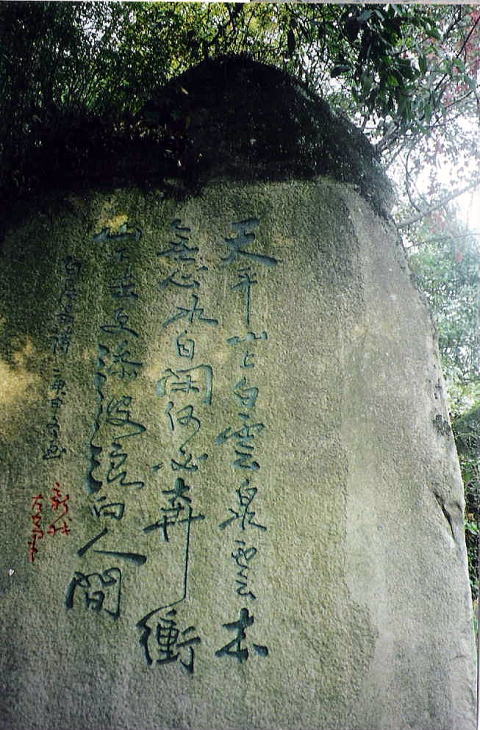 天平山上白雲泉雲本
無心水自閑何必奔衝
山下去更添波浪向人間
白居易詩